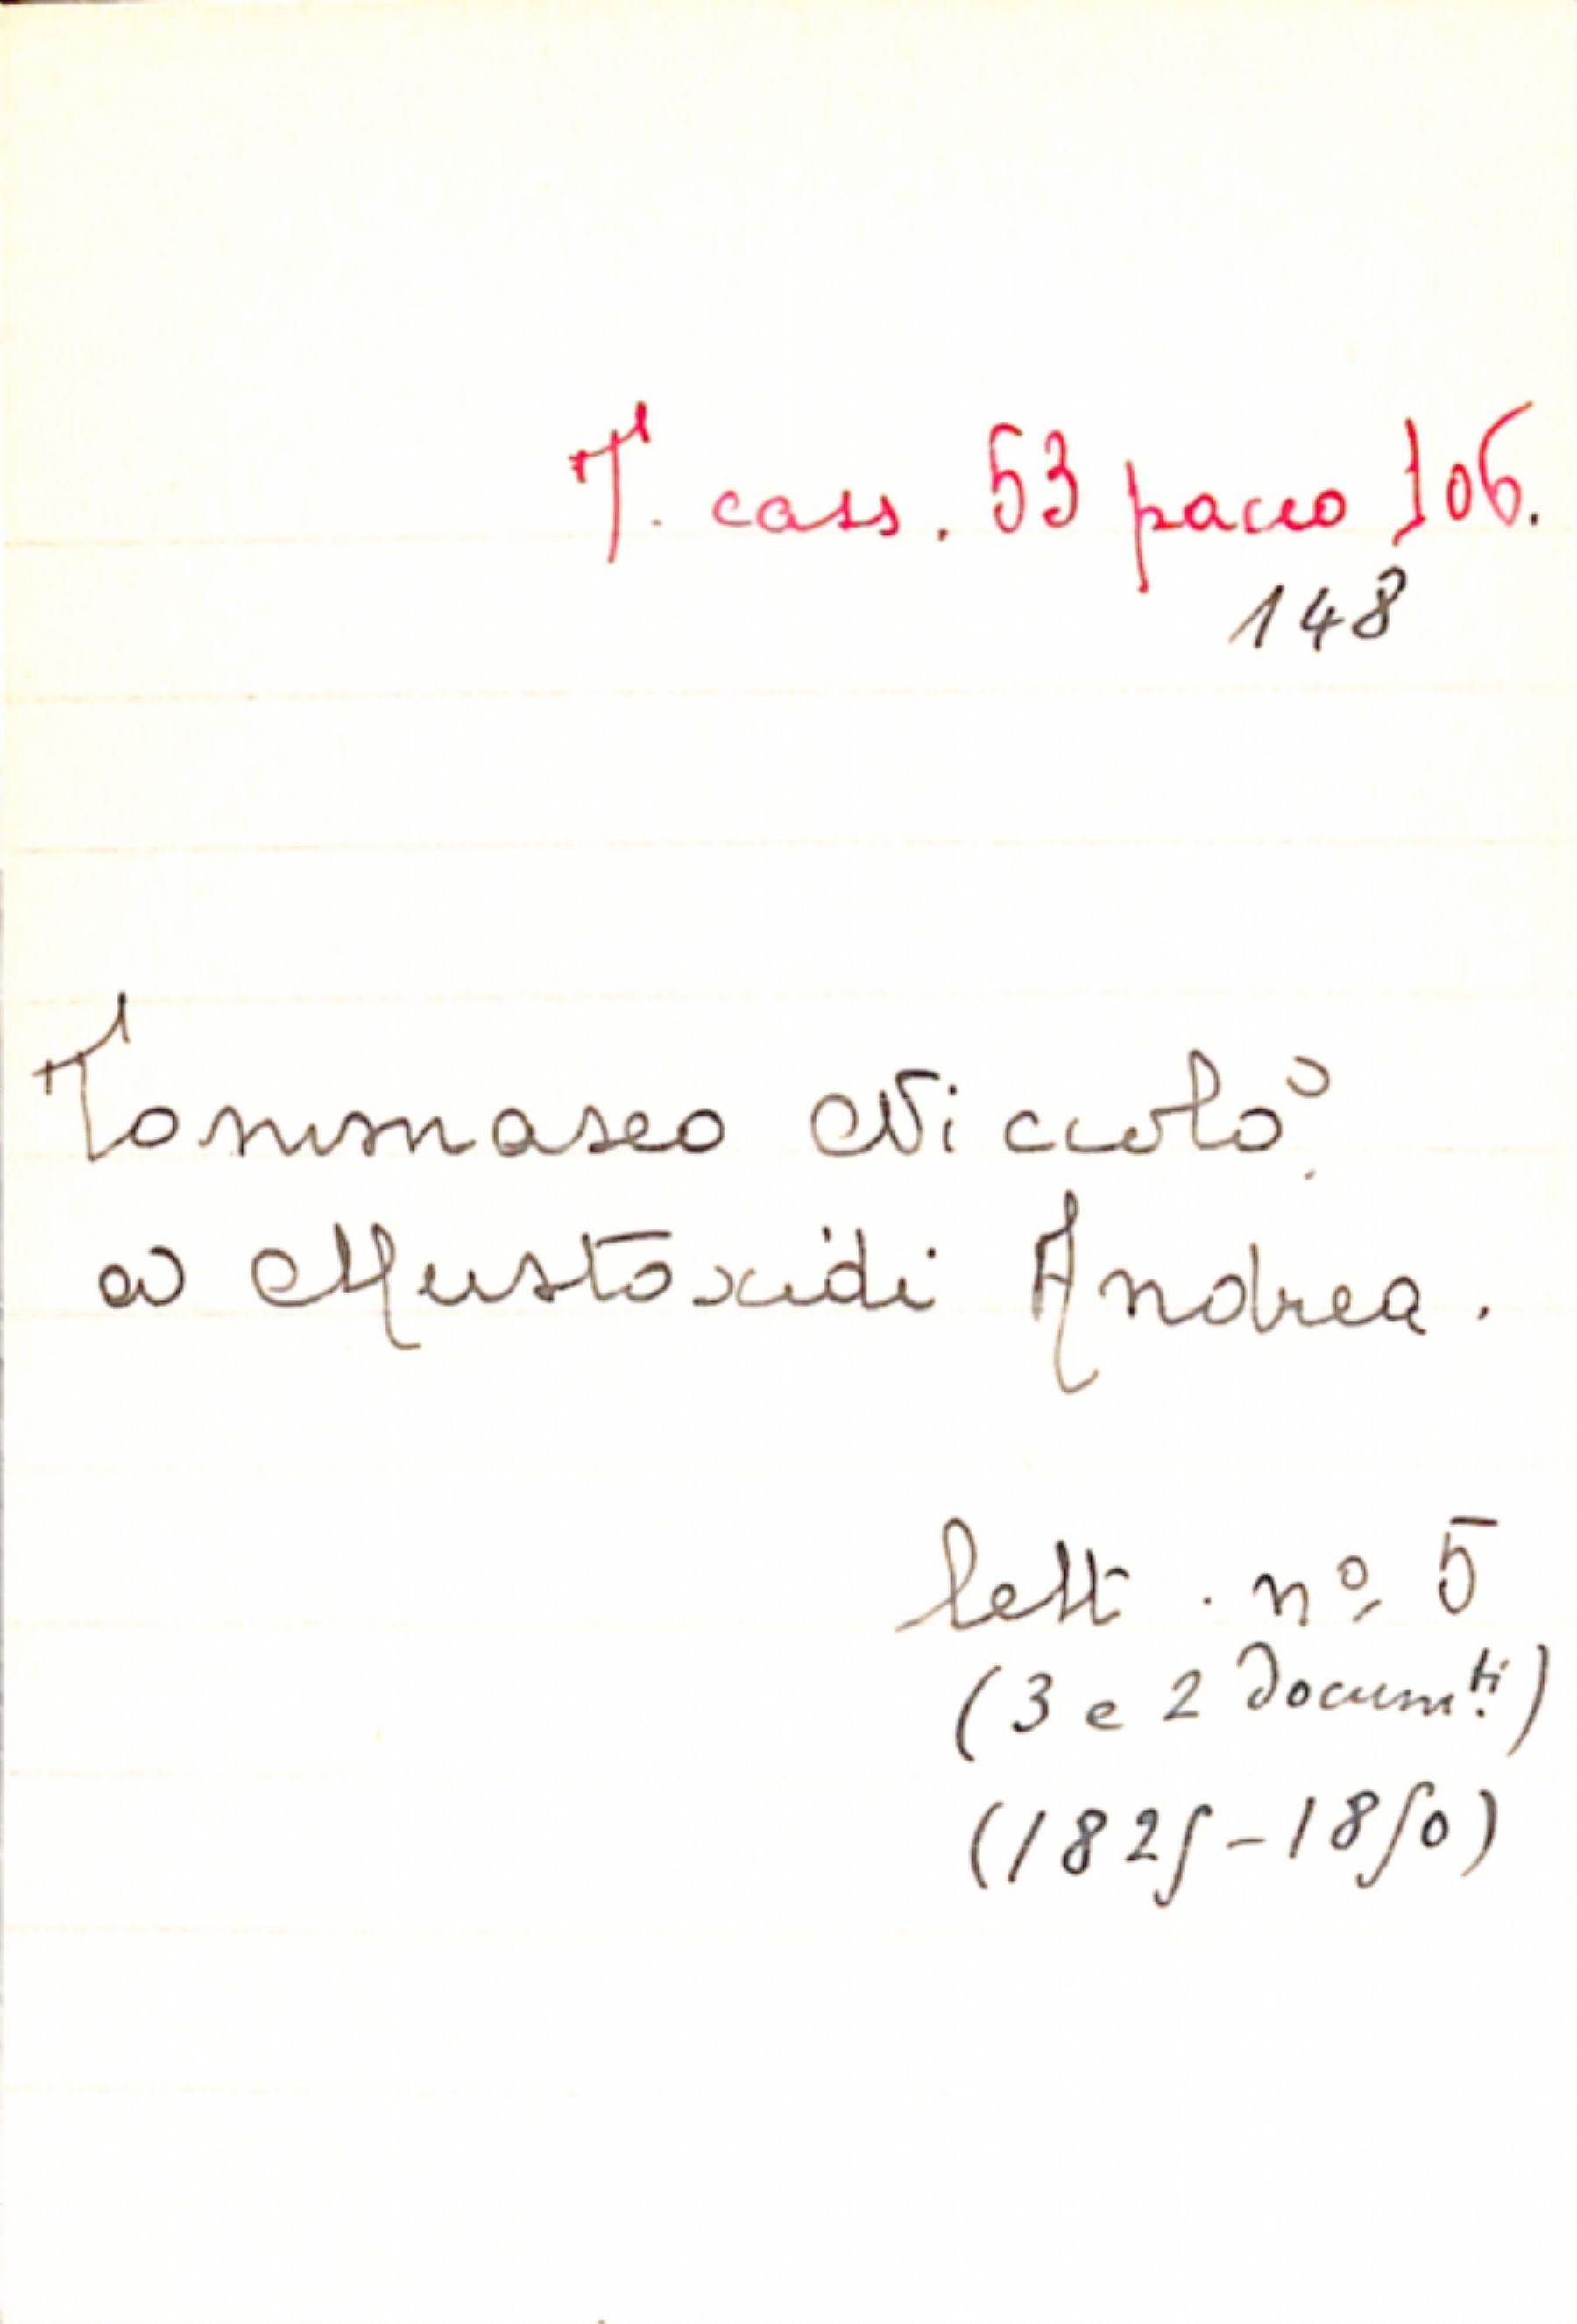 T. cass. 53 pacco 106.
148
Tommaseo Niccolò
a Mustoxidi Andrea.
lett. nº 5
(3 e 2 Docum.ti)
(1825-1850)